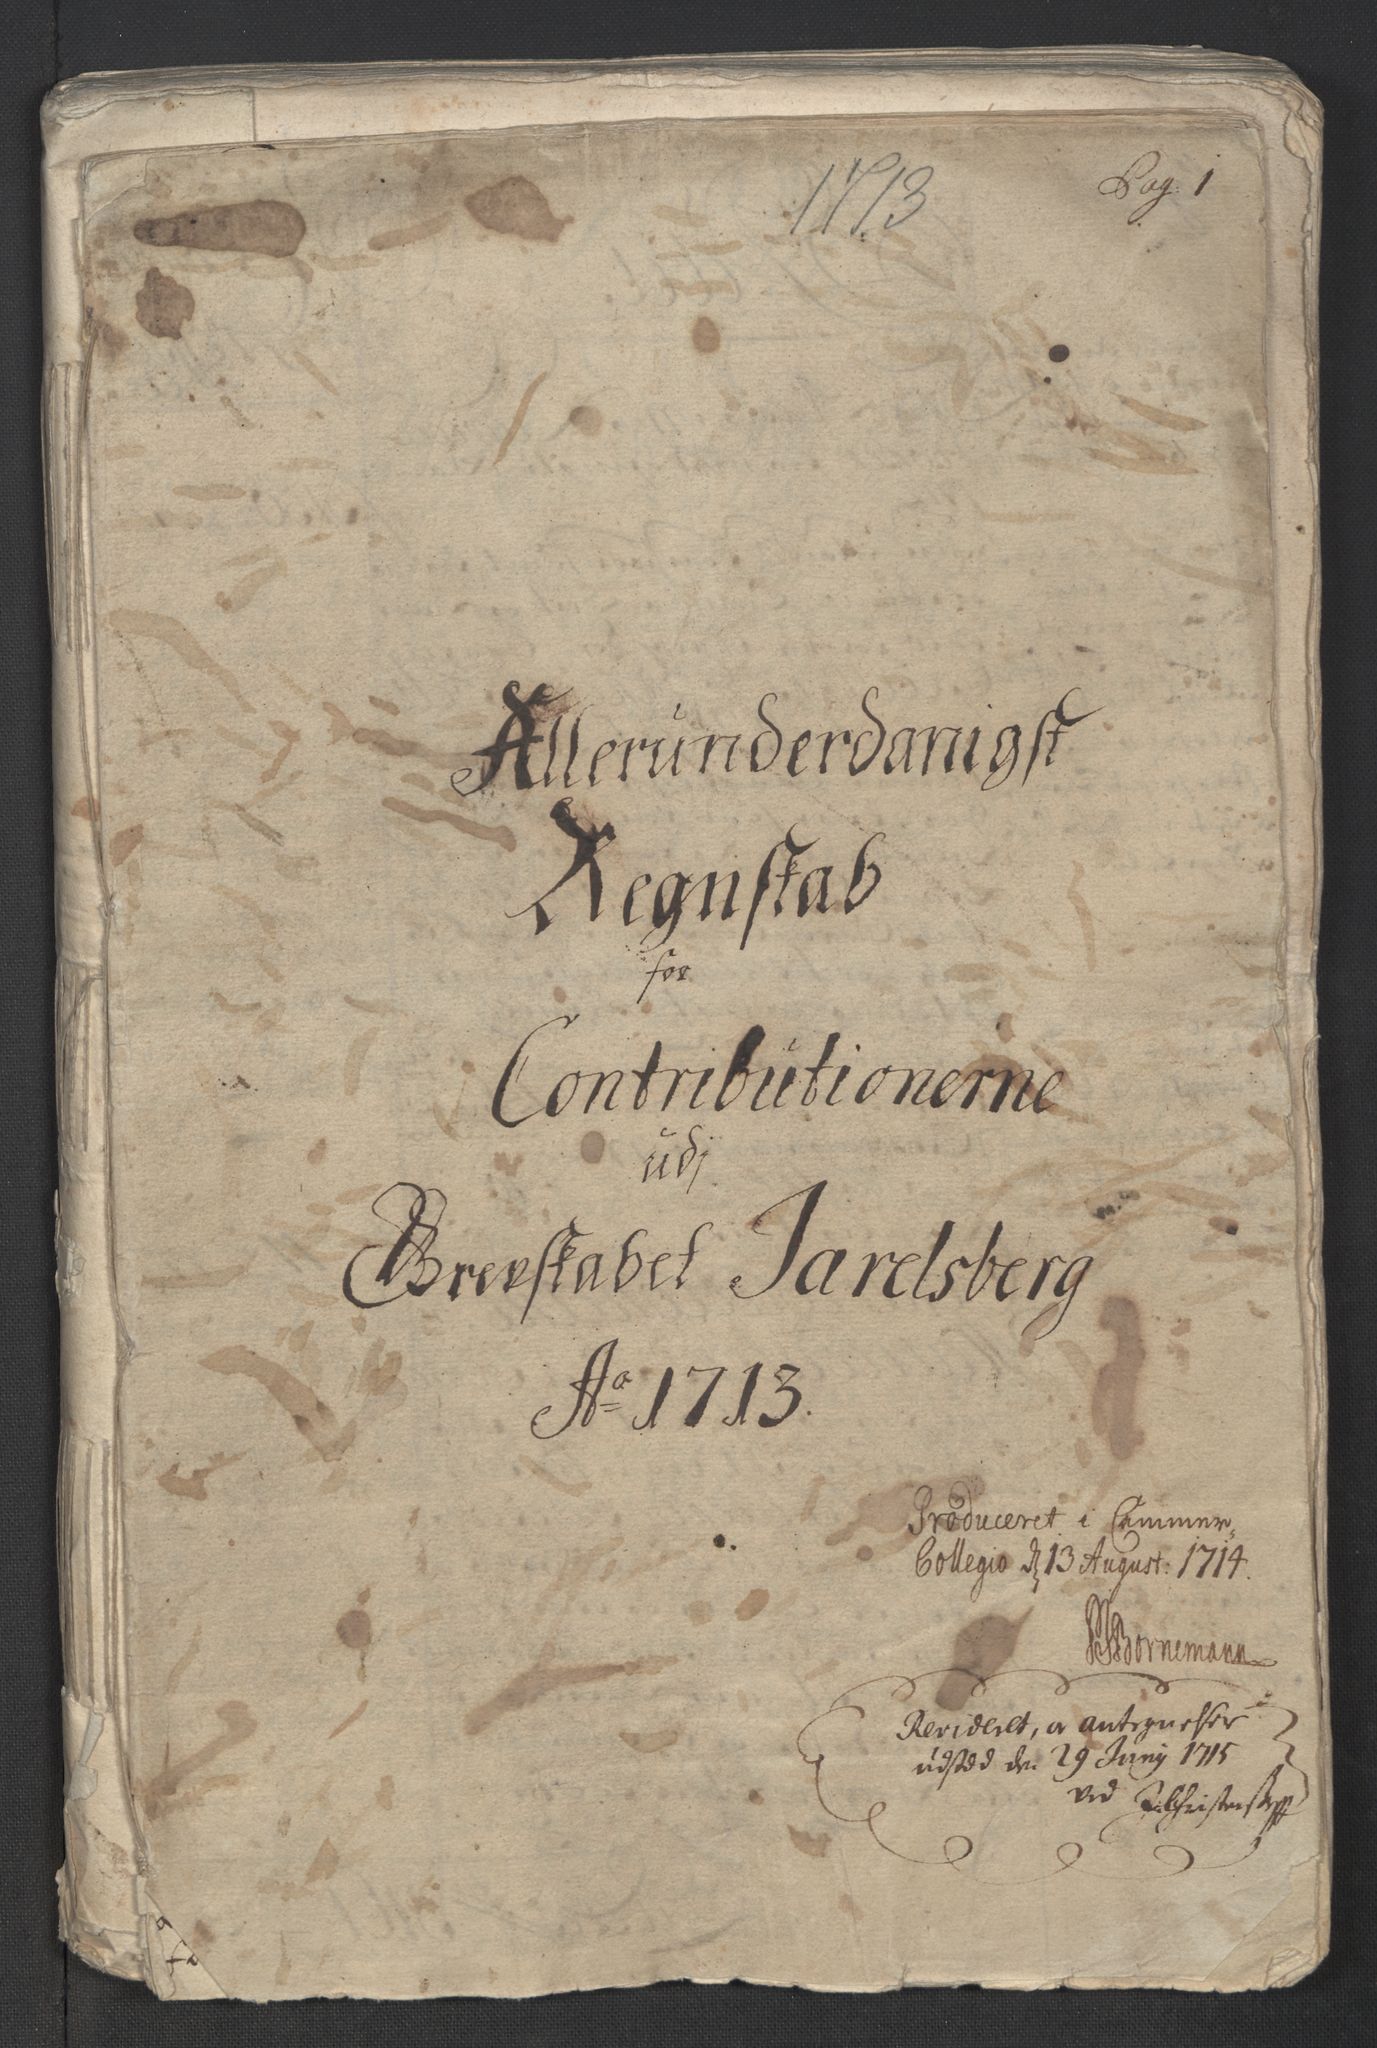 1713
Pag: 1
Allerunderdanigst
Regnskab
for
Contributionerne
udj
Grevskabet Jarelsberg
Aº 1713.
Produceret i Cammer-
Collegio d 13 August: 1714.
Bornemann
Revideret, og antegnelser
udsted den 29 Junij 1715
ved